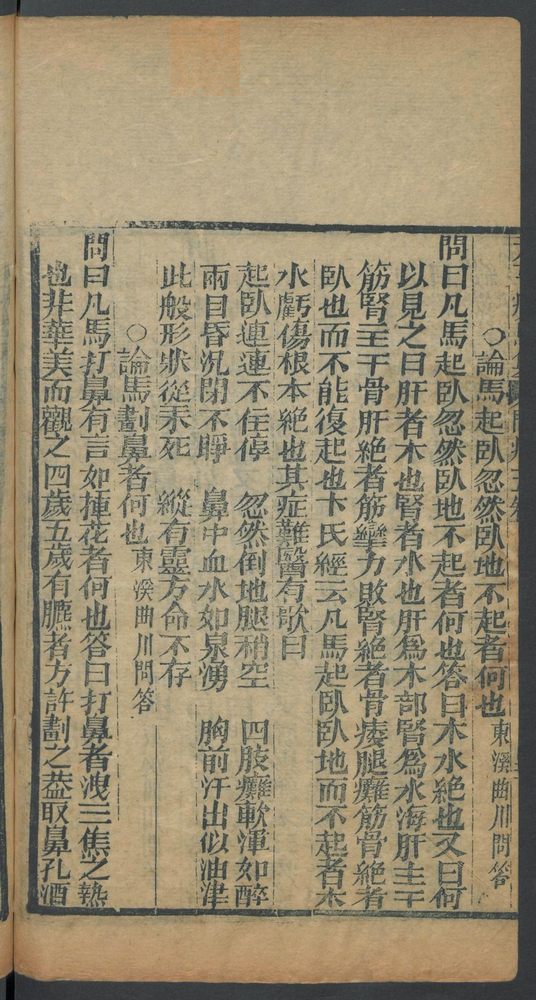 ○論馬起臥忽然臥地不起者何也 東溪曲川問答
問曰凡馬起臥忽然臥地不起者何也答曰木水絶也又曰何
以見之曰肝者木也腎者水也肝為木部腎為水海肝主于
筋腎主于骨肝絶者筋攣力敗腎絶者骨痿腿癱筋骨絶者
臥也而不能復起也卞氏經云凡馬起臥臥地而不起者木
水虧傷根本絶也其症難醫有歌曰
起臥連連不住停 忽然倒地腿稍空 四肢癱軟渾如醉
兩目昏沉閉不睜 鼻中血水如泉湧 胸前汗出似油津
此般形狀從來死 縱有靈方命不存
○論馬劃鼻者何也 東溪曲川問答
問曰凡馬打鼻有言如插花者何也答曰打鼻者洩三焦之熱
也非華美而觀之四歲五歲有臕者方許劃之葢取鼻孔酒